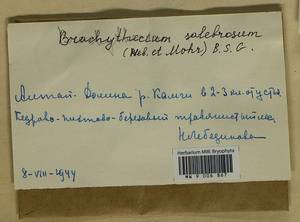 Brachythecium salebrosum
(Web. et Mohr) B. S. G.
Алтай. Долина р. Камги в 2-3 км. от устья.
Кедрово-пихтово-березовый травянистый лес.
Н. Лебединова
8-VIII-1944
Herbarium MW, Bryophyta
MW 9 006 867